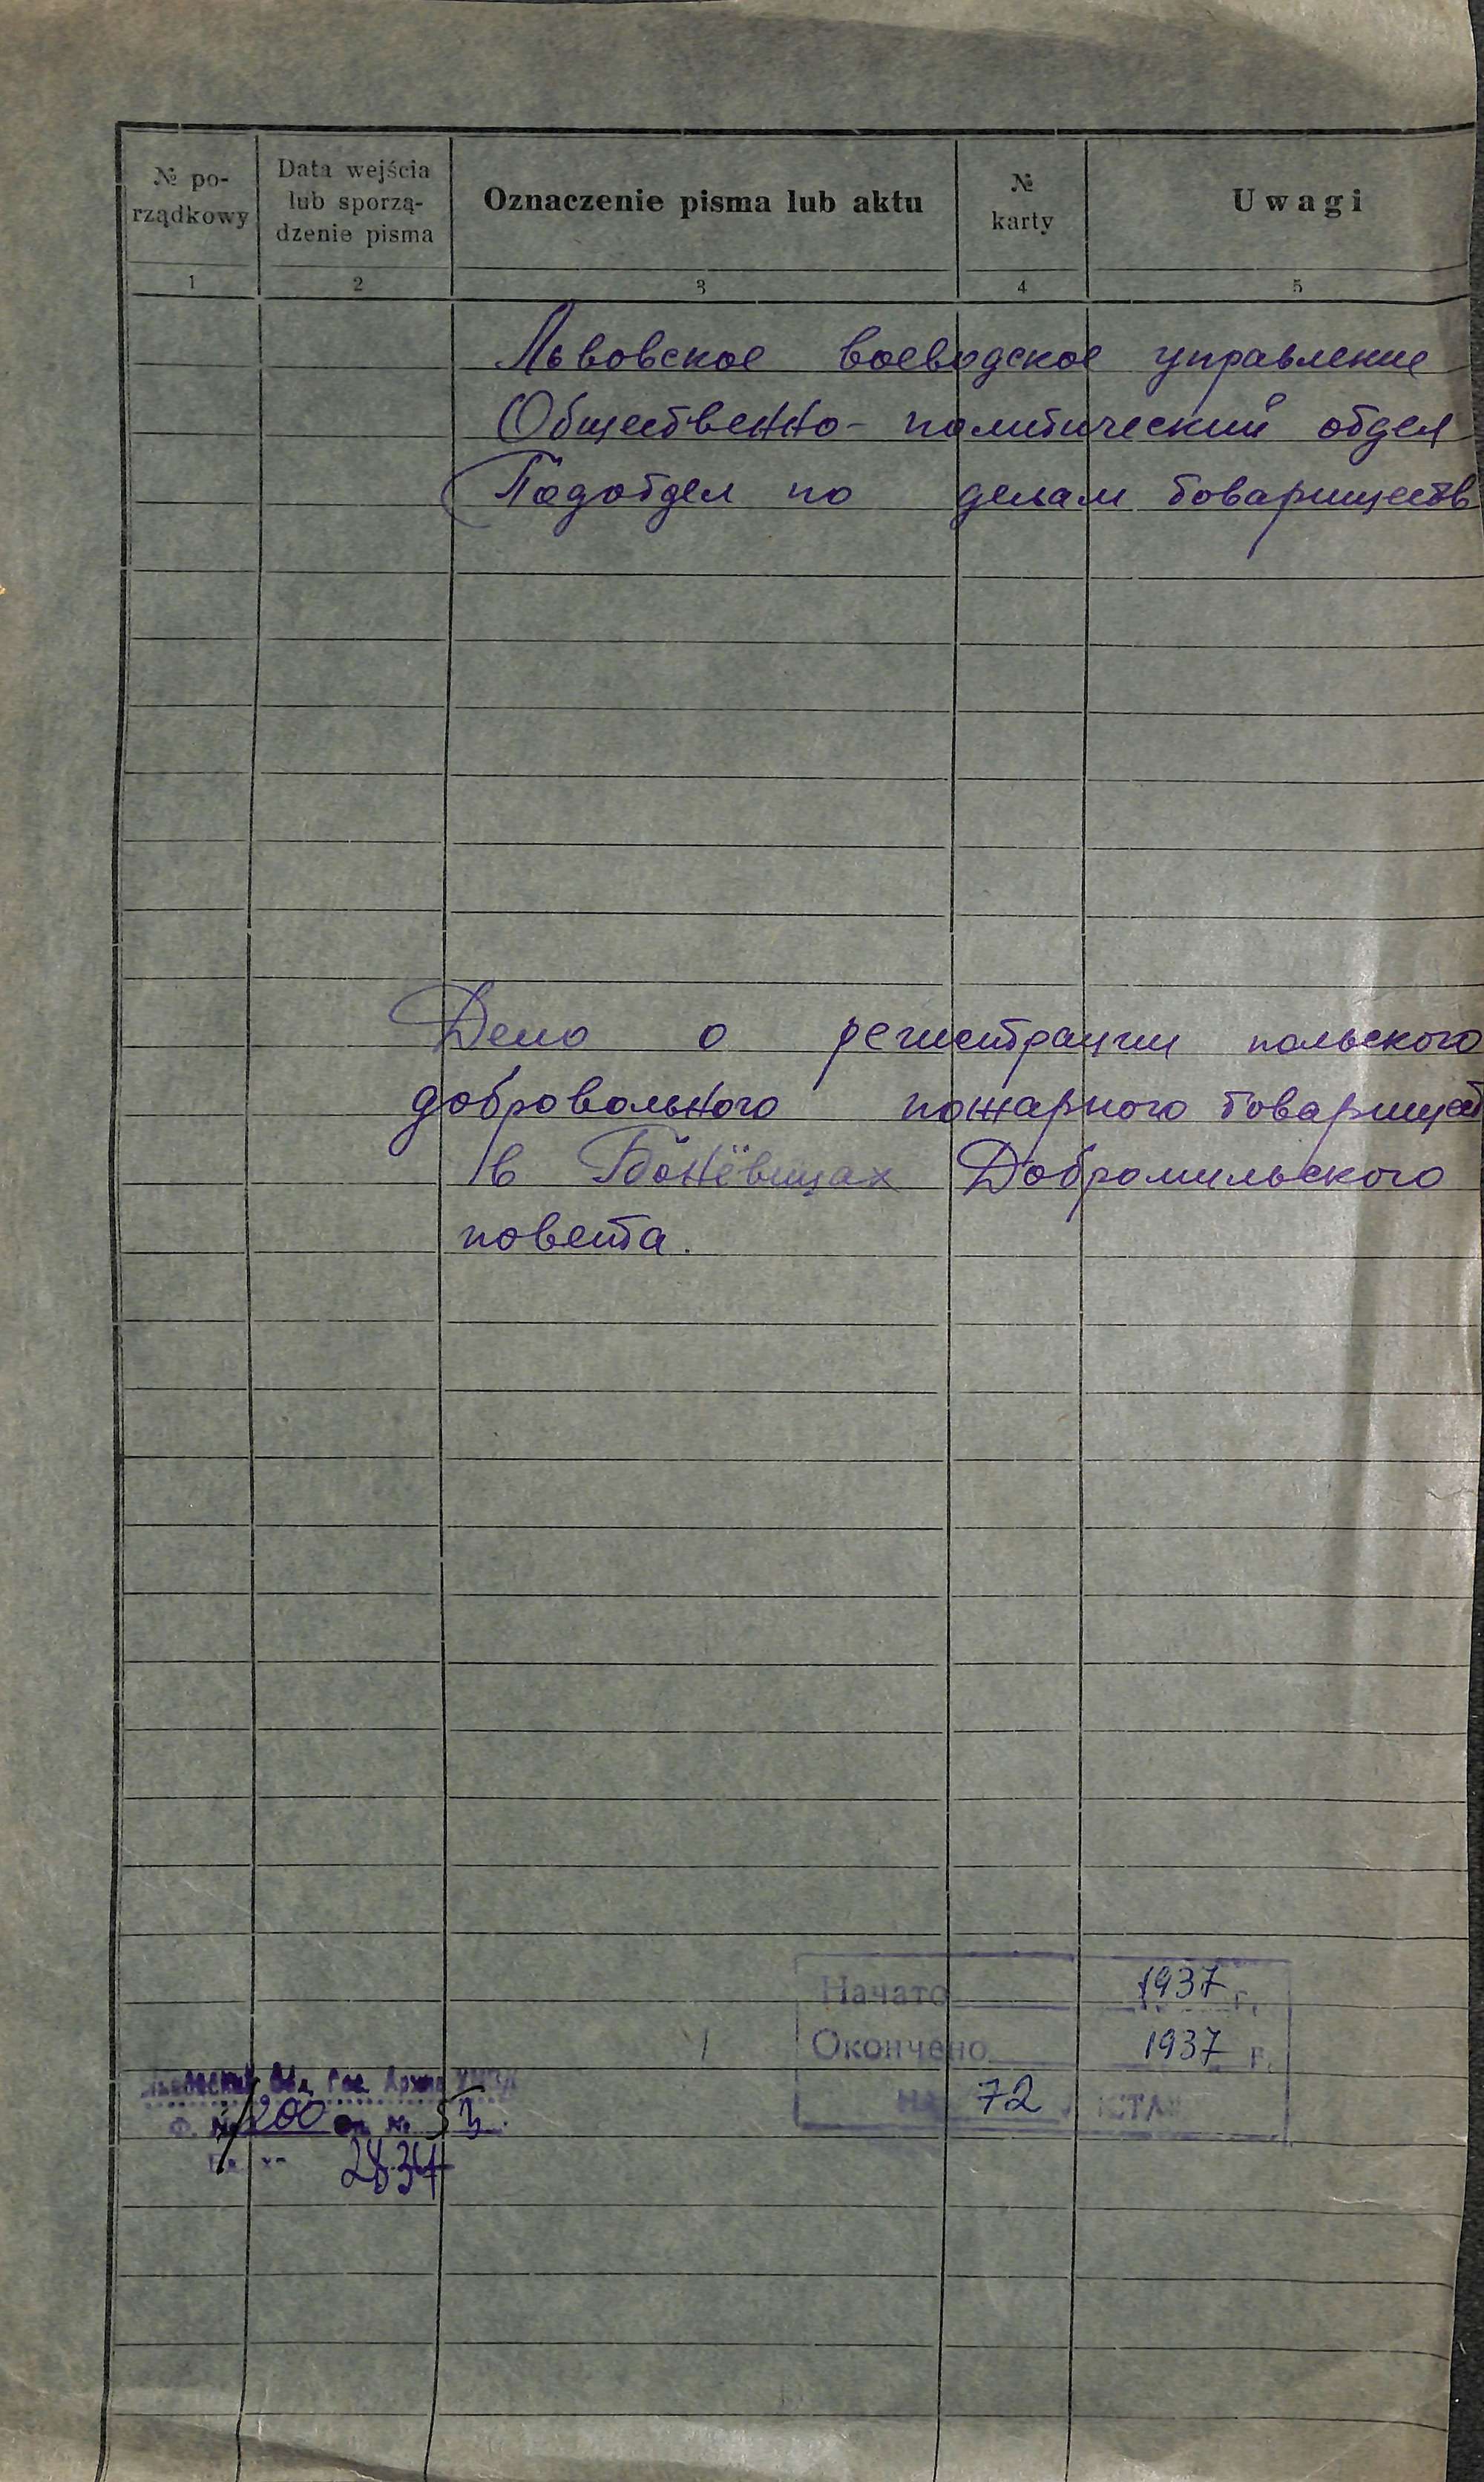 № po-
rządkowy
Data wejścia
lub sporzą-
dzenie pisma
Oznaczenie pisma lub aktu
№
karty
Uwagi
1 2 3 4 5
Львовское воеводское управление
Общественно-политический отдел
Подотдел по делам товариществ
Дело о регистрации польского
добровольного пожарного товарищест
в Бонёвицах Добромильского
повета.
Начато 1937 г.
Окончено 1937 г.
на 72
Обл. Гос. Архив
Ф. № 1/200 оп. № 5
2834